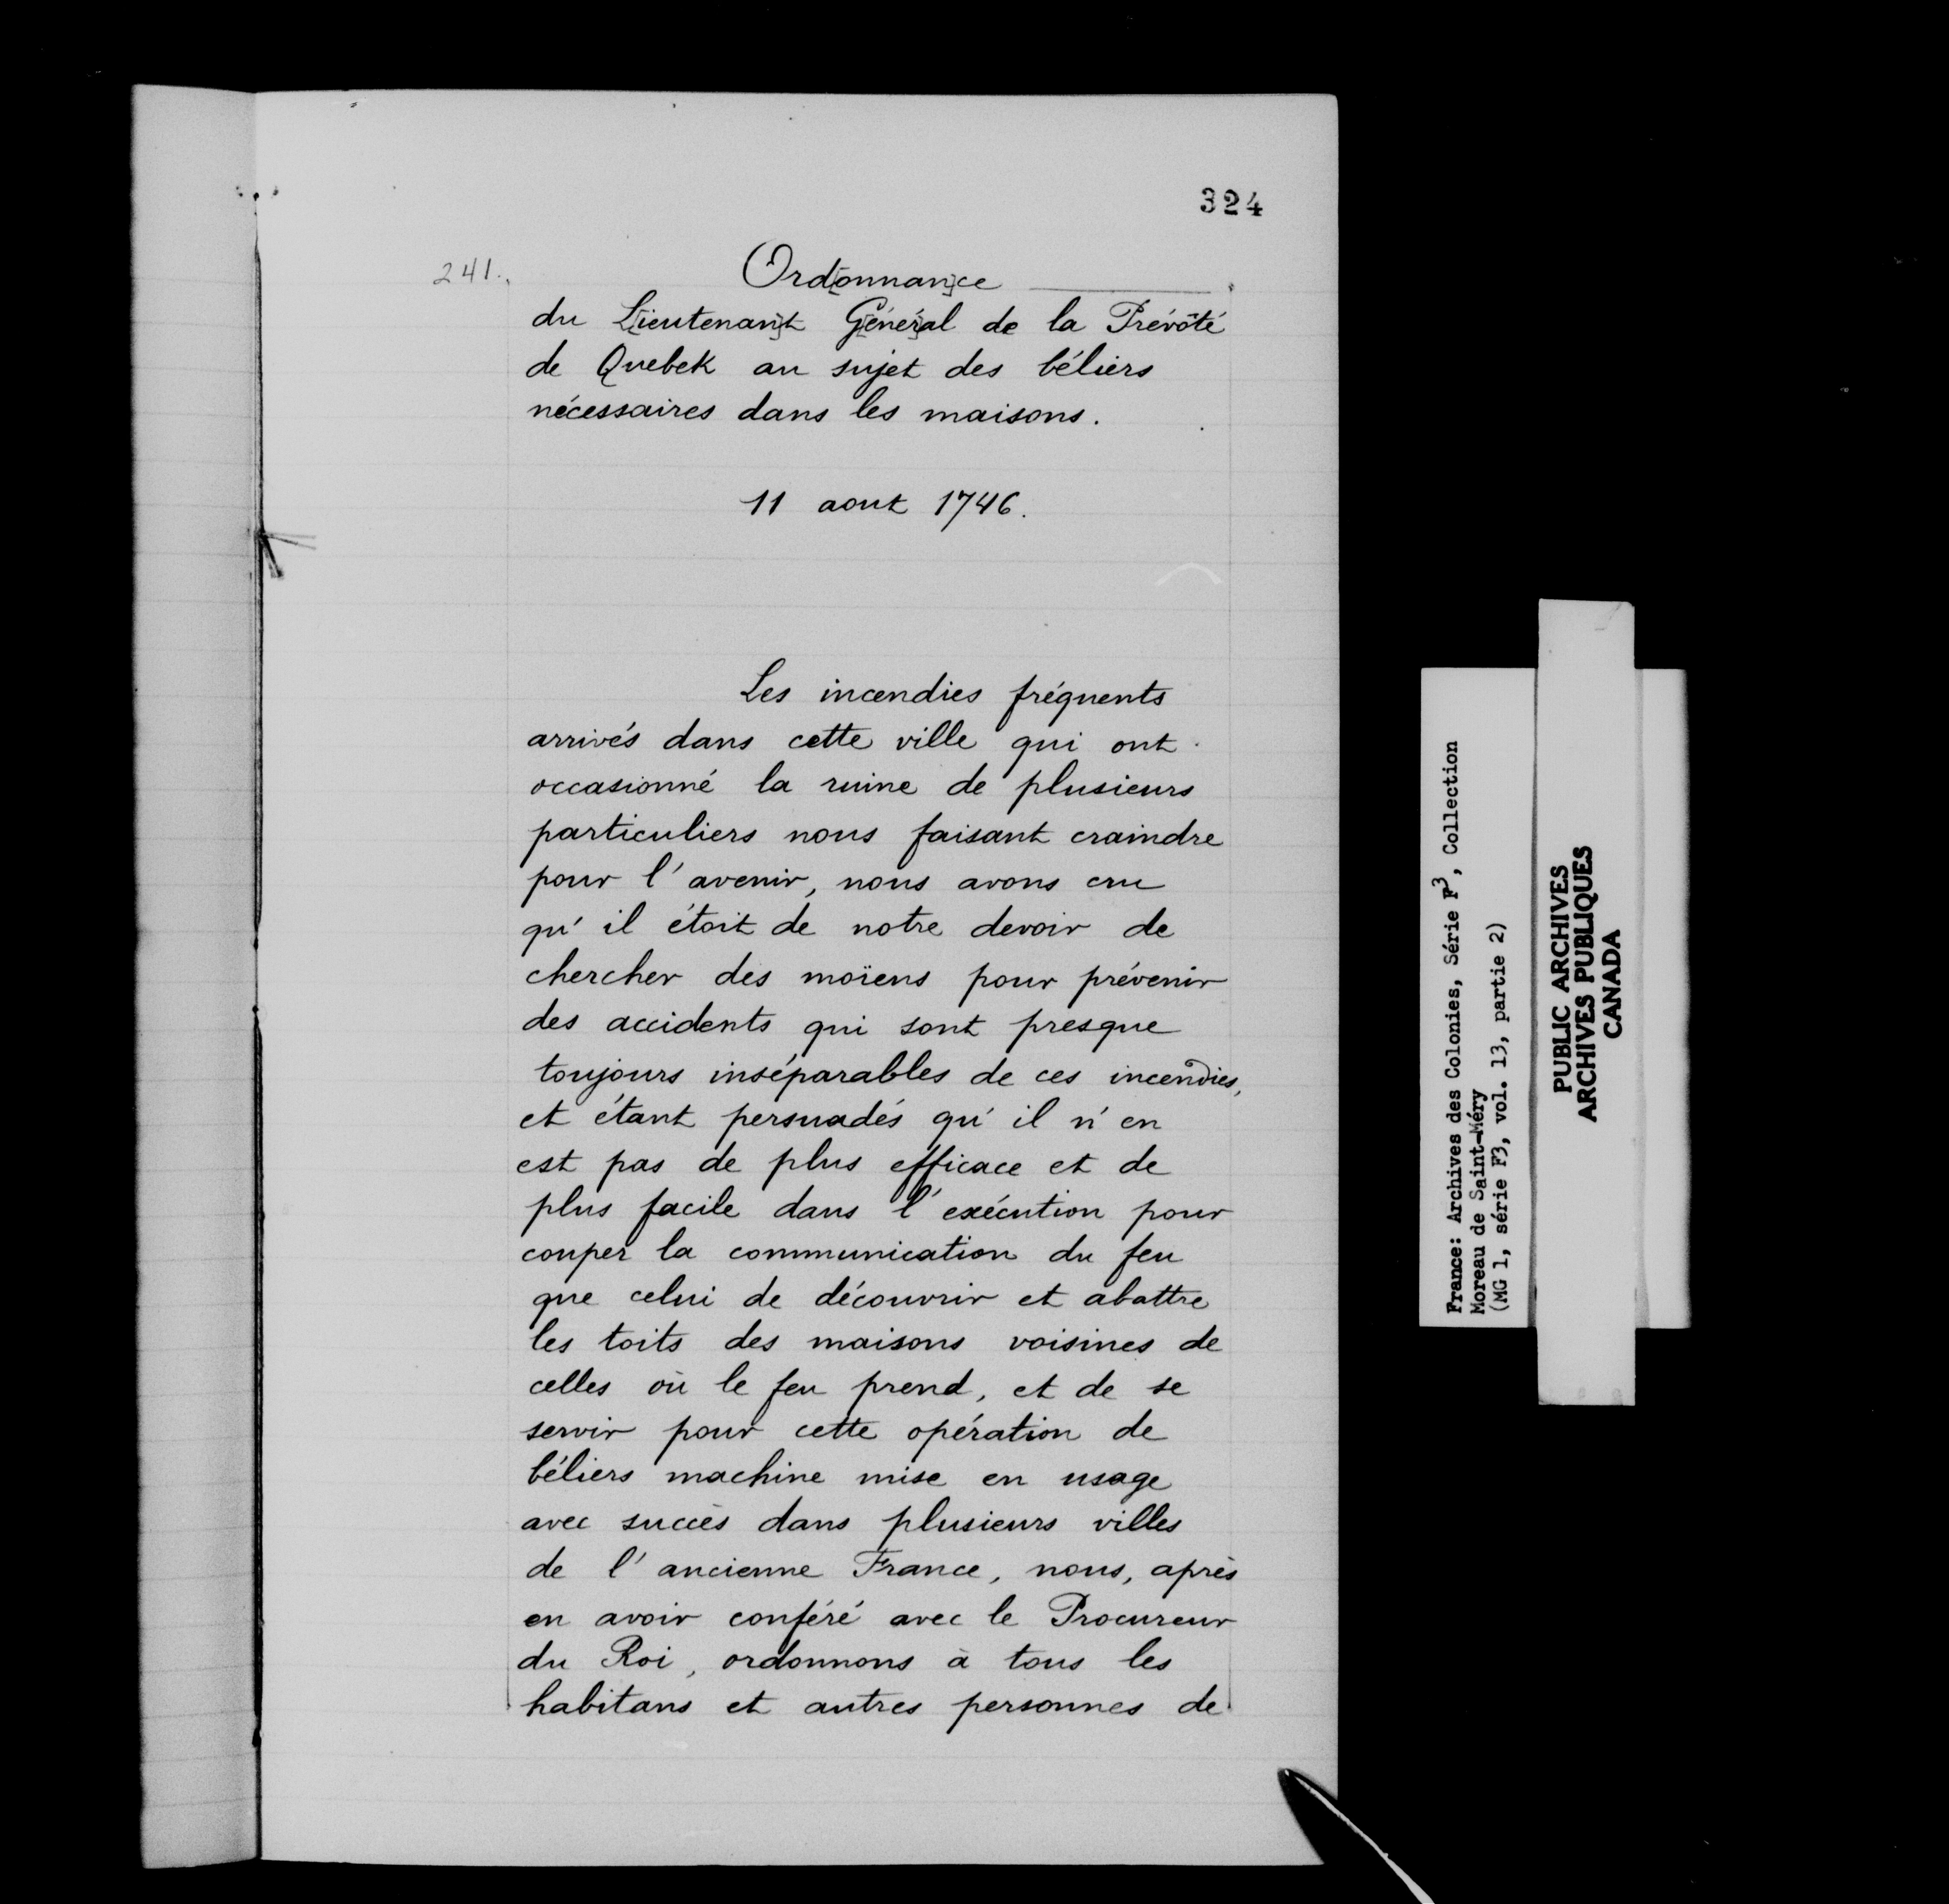 324
241.
Ord[onnan]ce
du L[ieutenan]t G[énér]al de la Prévôté
de Quebek au sujet des béliers
nécessaires dans les maisons.
11 aout 1746.
Les incendies fréquents
arrivés dans cette ville qui ont
occasionné la ruine de plusieurs
particuliers nous faisant craindre
pour l'avenir, nous avons cru
qu'il étoit de notre devoir de
chercher des moïens pour prévenir
des accidents qui sont presque
toujours inséparables de ces incendies,
et étant persuadés qu'il n'en
est pas de plus efficace et de
plus facile dans l'exécution pour
couper la communication du feu
que celui de découvrir et abattre
les toits des maisons voisines de
celles où le feu prend, et de se
servir pour cette opération de
béliers machine mise en usage
avec succès dans plusieurs villes
de l'ancienne France, nous, après
en avoir conféré avec le Procureur
du Roi, ordonnons à tous les
habitans et autres personnes de
France: Archives des Colonies, Série F3, Collection
Moreau de Saint-Méry
(MG 1, série F3, vol. 13, partie 2)
PUBLIC ARCHIVES
ARCHIVES PUBLIQUES
CANADA